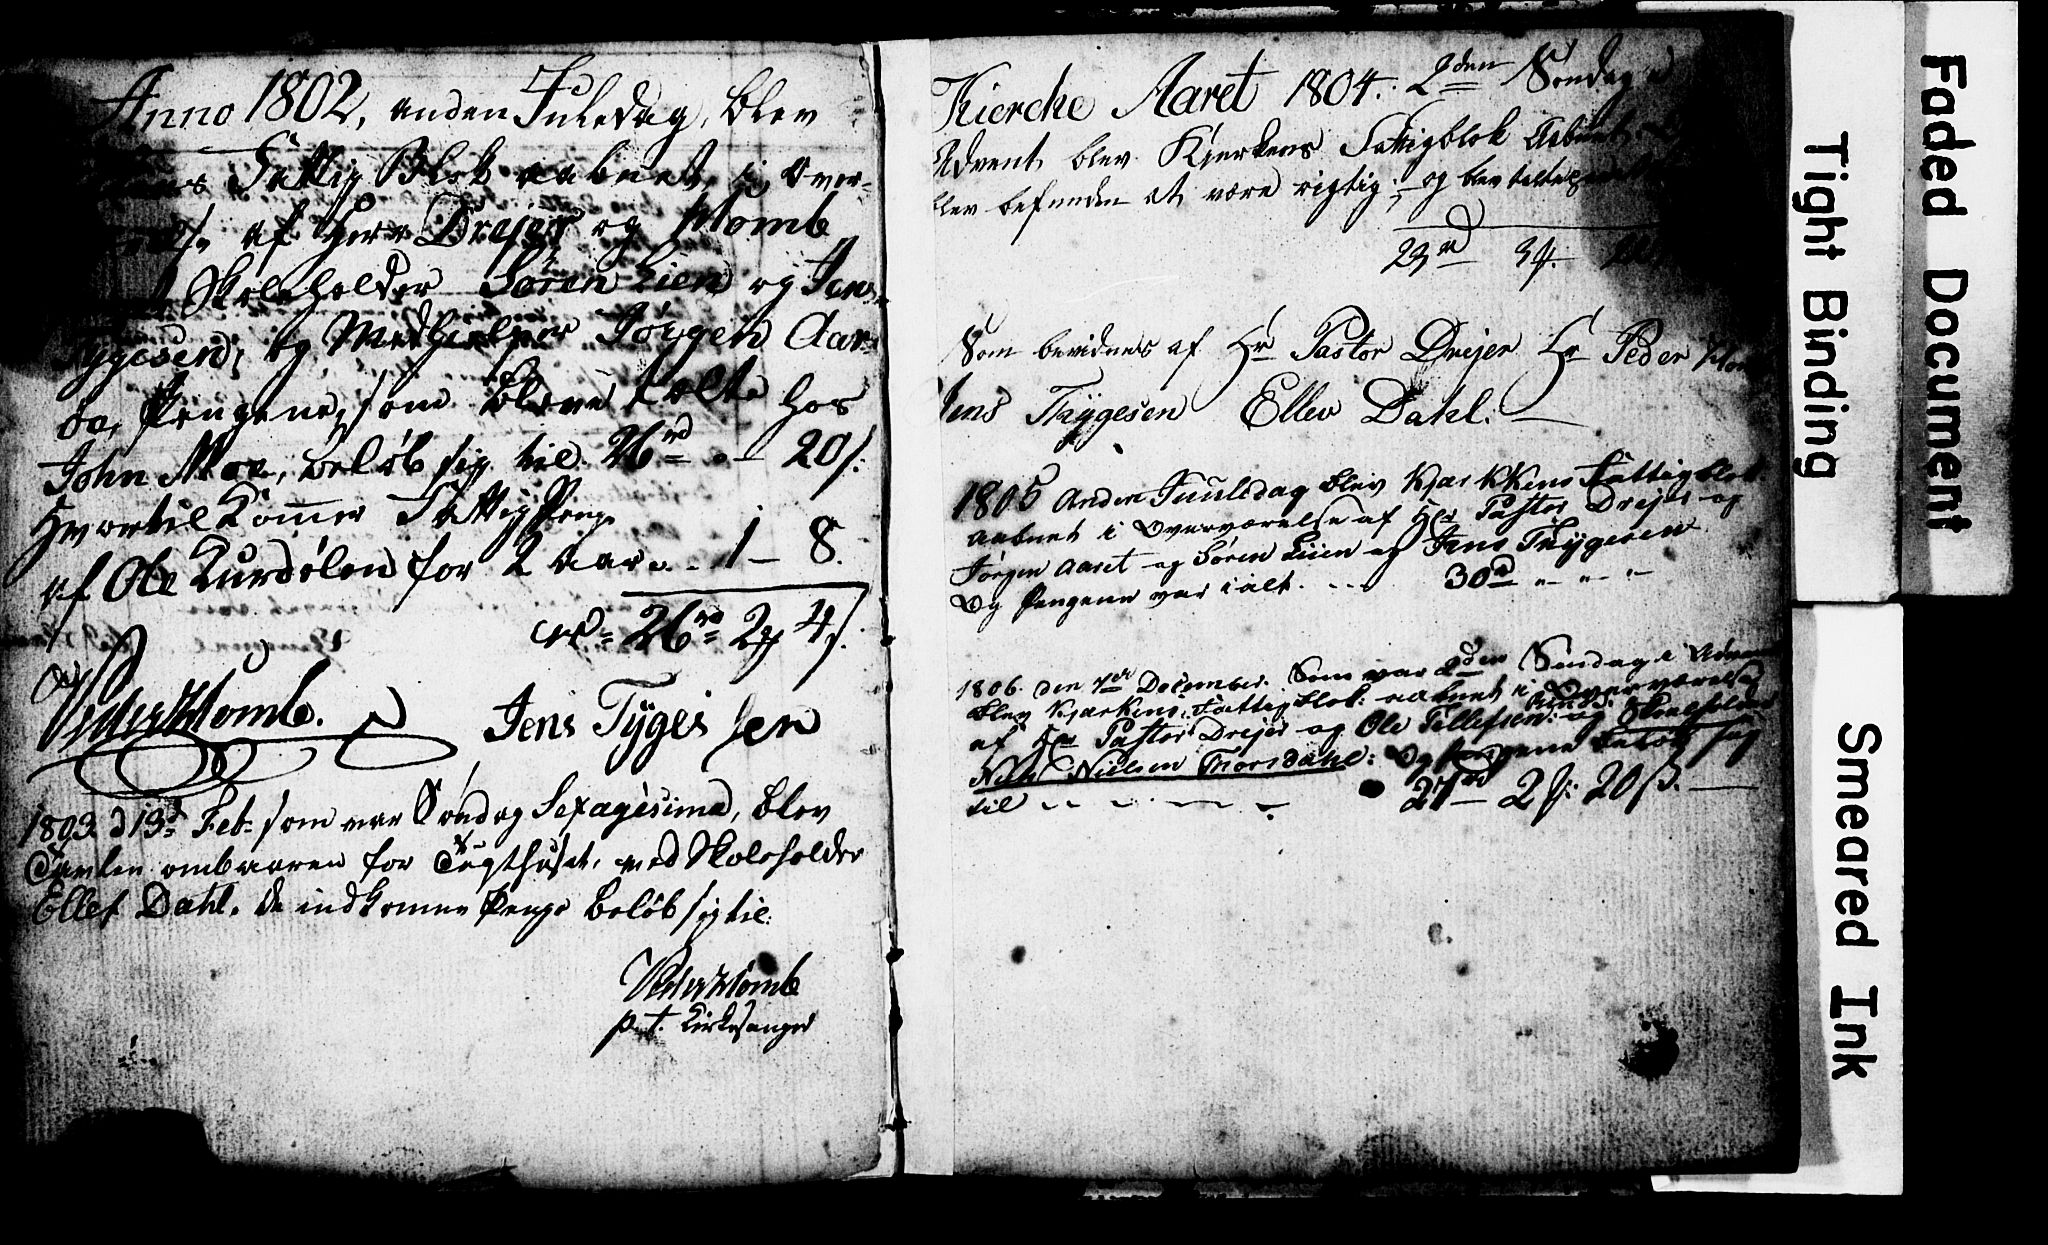 Anno 1802, anden Juledag, blev
Fattig Blok aabnet, i Over-
af Herr Drejer og Klomb
Skoleholder Søren Lien og Jens
Tygesen, og Medhjelper Jørgen Aar-
Pengene, som bleve talte hos
John Moe, beløb sig til 26 rd " - 20 s.
Hvortil Kommer Fattig Penge
af Ole Kurdølen for 2 Aar .. 1 - 8.
26 rd 2 4 s.
Peder Klomb. Jens Tygesen
1803. d 13d Feb. som var Søndag Sexagesima, blev
Tavlen ombaaren for Tugthuset, med Skoleholder
Ellef Dahl. de indkomne Penge beløb sig til.
Peder Klomb
p. t. Kirkesanger
Kierche Aaret 1804. 2den Søndag
Advent blev Kierkens Fattigblok Aabnet
blev befunden at være rigtig; og blev talte
23 rd 3
Som bevidnes af Hr Pastor Drejer Hr Peder Klomb
Jens Thygesen Ellev Dahl.
1805 Anden Juuledag blev Kjærkkens Fattigblok
aabnet i Overværelse af Her Pastor Drejer og
Jørgen Aaret og Søren Liien og Jens Thygesen
Og Pengene var i alt. . . . 30 rd " - " - " -
1806. den 7de December. Som var 2den Søndag i Advent
blev Kjærkens Fattig blok: aabnet i Overværelse
af Her Pastor Drejer og Ole Tellefsen: og Skoleholder
Niels Nielsen Thorsdahl: Og Pengene beløb sig
til 27 rd - 2 20 ß.
Faded Document
Tight Binding
Smeared Ink